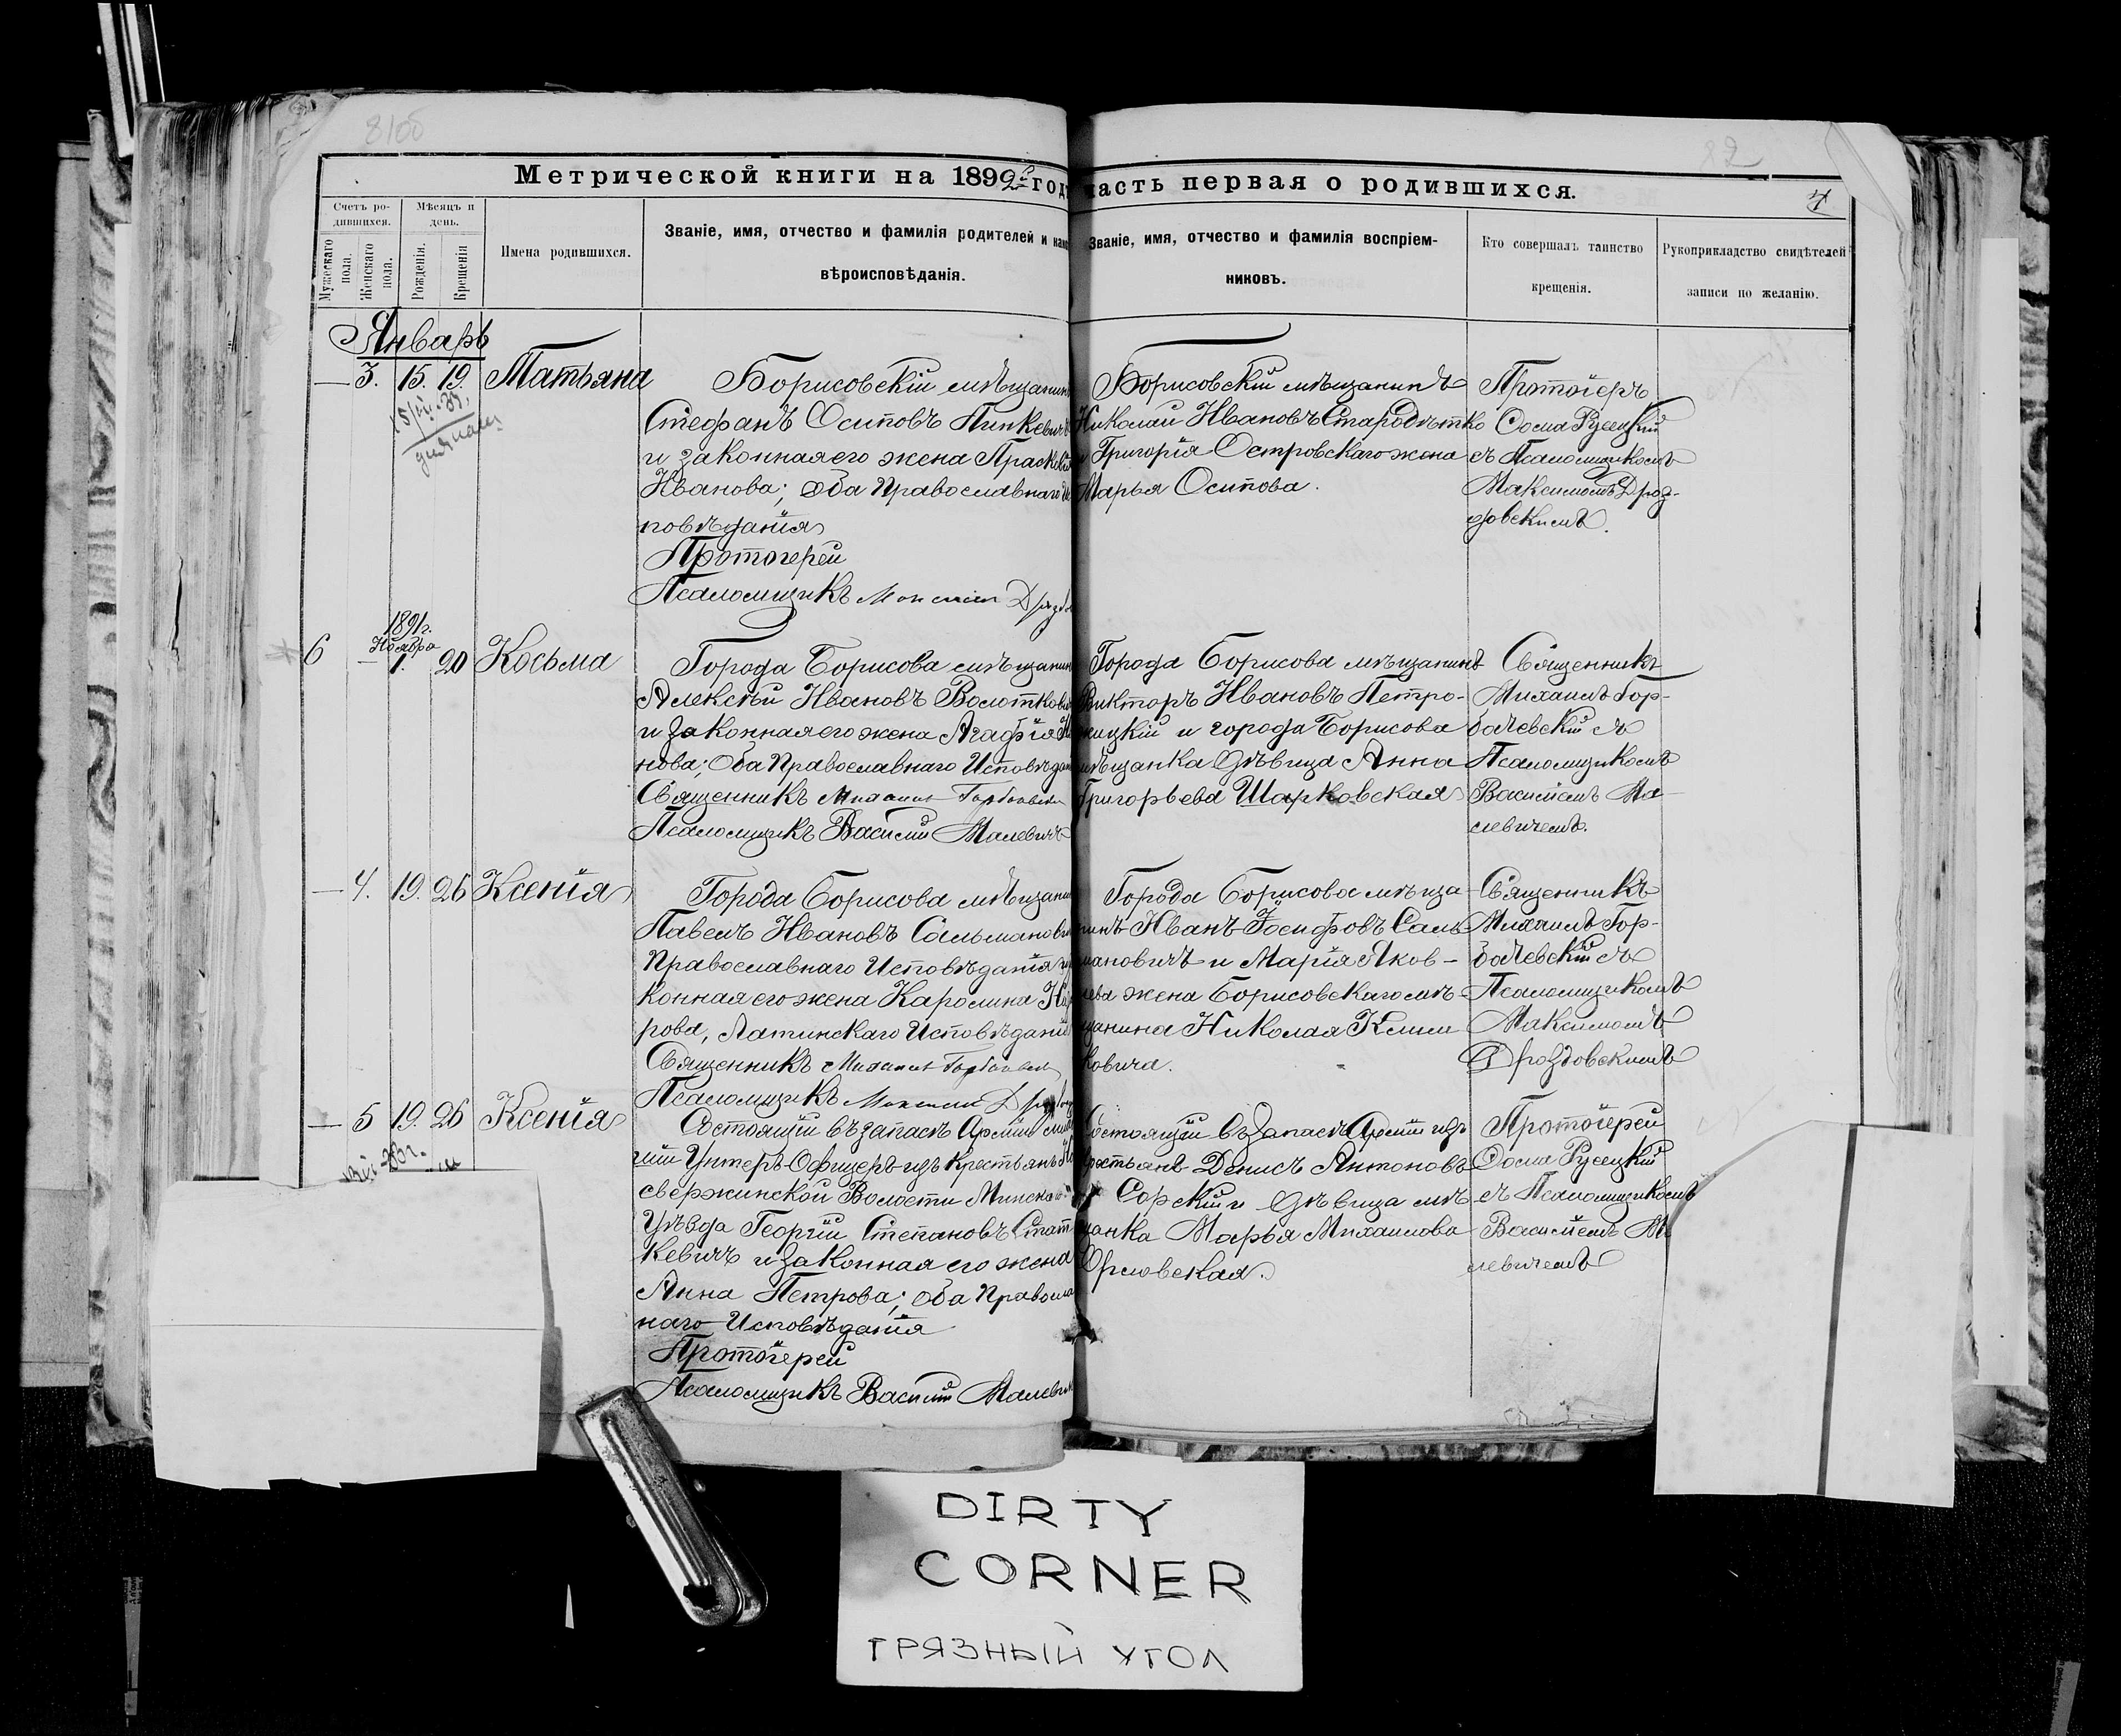 81об
82
Метрической книги на 1892й год
часть первая о родившихся.
4
Счетъ ро-
дившихся.
Мужескаго
пола.
Женскаго
пола.
Мѣсяцъ и
день.
Рожденія.
Крещенія
Имена родившихся.
Званіе, имя, отчество и фамилія родителей и како
вѣроисповѣданія.
Званіе, имя, отчество и фамилія воспріем-
никовъ.
Кто совершалъ таинство
крещенія.
Рукоприкладство свидѣтелей
записи по желанію.
Январь
— 3. 15. 19. Татьяна
Борисовскій мѣщанинъ
Стефанъ Осиповъ Пинкевичъ
и законная его жена Прасковія
Иванова; оба Православнаго Ис
повѣданія
Протоіерей
Псаломщикъ Максим Дроздов
Борисовскій мѣщанинъ
Николай Ивановъ Стародѣтко
и Григорія Островскаго жена
Марья Осипова.
Протоіерѣ
Ѳома Русецкій
съ Псаломщикомъ
Максимомъ Дроз-
довскимъ.
6 — 1891г. Ноября 1. 20 Косьма
Города Борисова мѣщанин
Алексѣй Ивановъ Волоткови
и законная его жена Агафія И
нова; оба Православнаго Исповѣдан
Священникъ Михаилъ Горбачевскі
Псаломщикъ Василій Малевичъ
Города Борисова мѣщанинъ
Викторъ Ивановъ Петро-
жицкій и города Борисова
мѣщанка дѣвица Анна
Григорьева Шарковская
Священникъ
Михаилъ Гор-
бачевскій съ
Псаломщикомъ
Василіемъ Ма-
левичемъ.
— 4. 19. 26 Ксенія
Города Борисова мѣщанин
Павелъ Ивановъ Сальманови
Православнаго Исповѣданія и
конная его жена Каролина
рова, Латинскаго Исповѣданія
Священникъ Михаилъ Горбачевск
Псаломщикъ Максим Дроздов
Города Борисова мѣща-
нинъ Иванъ Іосифовъ Саль-
мановичъ и Марія Яков-
лева жена Борисовскаго мѣ-
щанина Николая Клим
ковича.
Священникъ
Михаилъ Гор-
бачевскій съ
Псаломщикомъ
Максимомъ
Дроздовскимъ
— 5 19. 26 Ксенія
Состоящій въ запасѣ Арміи млад
шій Унтеръ-Офицеръ изъ крестьянъ
свержинской Волости Минскаго
Уѣзда Георгій Степановъ Стат
кевичъ и законная его жена
Анна Петрова; оба Правосла
наго Исповѣданія
Протоіерей
Псаломщикъ Василій Малевич
Состоящій въ запасѣ Арміи изъ
крестьянъ Денисъ Антоновъ
Сорскій и дѣвица мѣ
щанка Марья Михаилова
Орловская.
Протоіерей
Ѳома Русецкій
съ Псаломщикомъ
Василіемъ Ма
левичемъ
DIRTY
CORNER
ГРЯЗНЫЙ УГОЛ